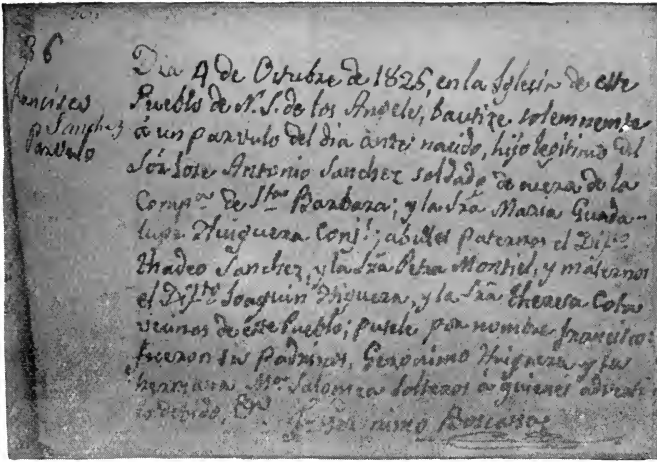 36
Francisco
Sanchez
Parvulo
Dia 4 de Octubre de 1826, en la Iglecia de este
Pueblo de N. S. de los Angeles, bautize solemnemte
á un parvulo del dia antes nacido, hijo legitimo del
Sór Jose Antonio Sanchez soldado de cuera de la
Compa de Sta Barbara; y la Sra Maria Guada-
lupe Huiguera Conj.; abuelos paternos el Difto
thadeo Sanchez, y la Sra Petra Montiel, y maternos
el Difto Joaquin Higuera, y la Sra theresa Cota
vecinos de este Pueblo; pusele por nombre francisco:
fueron sus Padrinos, Geronimo Huiguera y su
hermana Ma Salomea solteros á quienes adverti
lo debido, Era
Fr. Geronimo Boscana